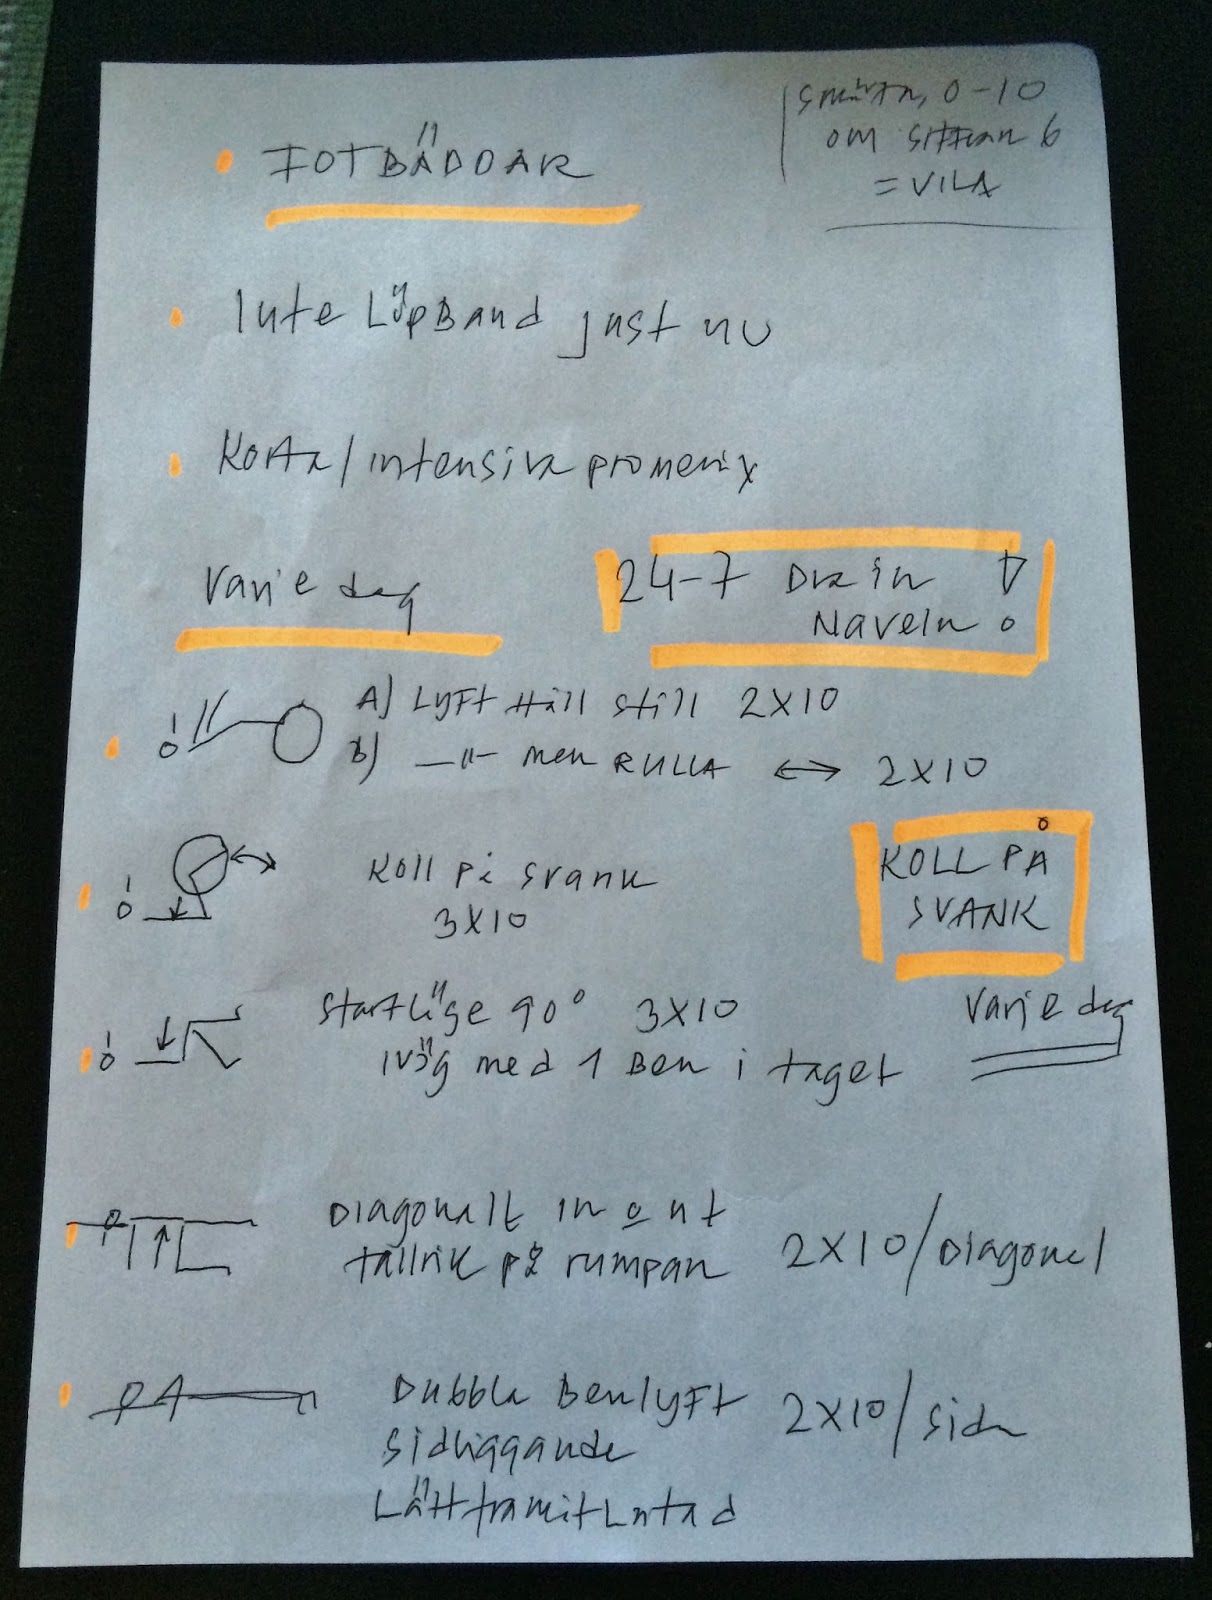 smärta, 0-10
om siffran 6
= VILA
FOTBÄDDAR
Inte LöpBand just nu
Korta/intensiva promenix
Varje dag
24-7 Dra in
Naveln !
A) LYFT Håll still 2X10
B) —"— men RULLA ↔ 2X10
Koll på svank
3X10
KOLL PÅ
SVANK
Startläge 90° 3X10
iväg med 1 Ben i taget
Varje dag
Diagonalt in o ut
tallrik på rumpan 2X10/Diagonal
Dubbla Benlyft 2X10/sida
Sidliggande
Lätt framåtlutad